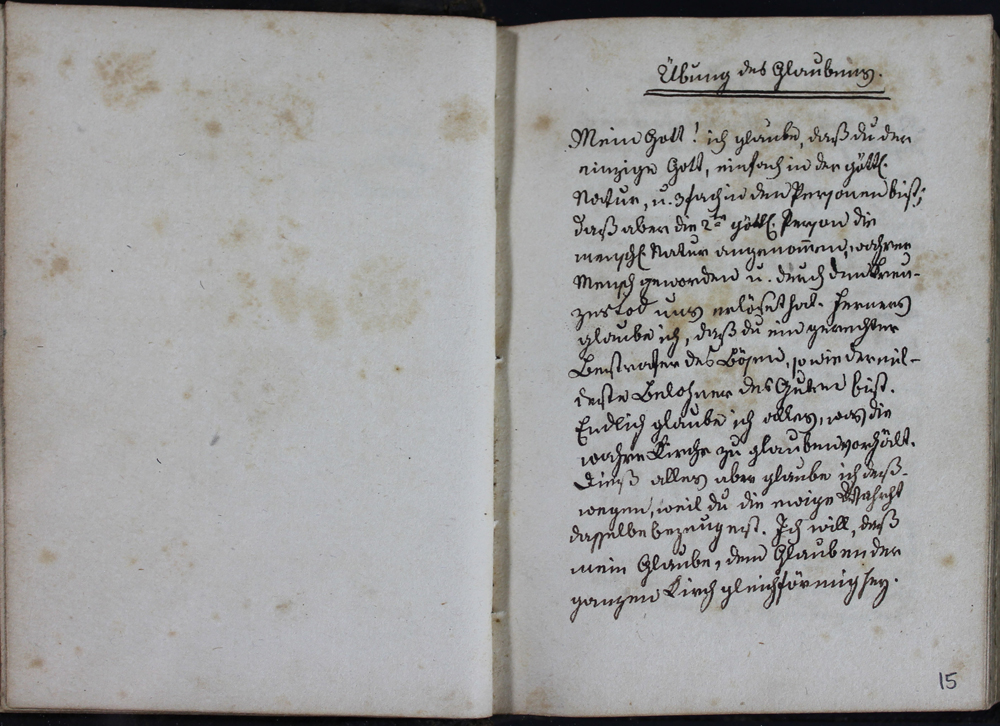 Übung des Glaubens.
Mein Gott! ich glaube, daß du der
einzige Gott, einfach in der göttl.
Natur, u. 3fach in den Personen bist;
daß aber die 2te göttl. Person die
menschl. Natur angenom̄en, wahrer
Mensch geworden u. durch den Kreu-
zestod uns erlöset hat. Ferners
glaube ich, daß du ein gerechter
Bestrafer des Bösen, so wie der mil-
deste Belohner des Guten bist.
Endlich glaube ich alles, was die
wahre Kirche zu glauben vorhält.
Dieß alles aber glaube ich deß-
wegen, weil du die ewige Wahrht
dasselbe bezeugest. Ich will, daß
mein Glaube, dem Glauben der
ganzen Kirch gleichförmig sey.
15